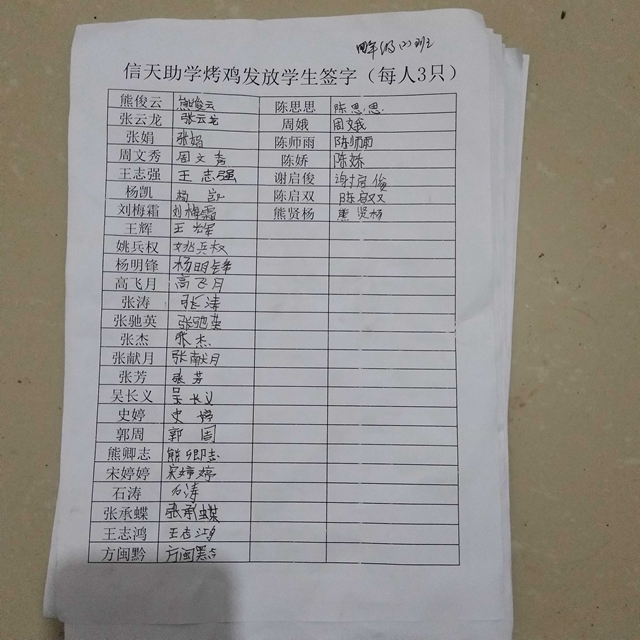 四年级(2)班
信天助学烤鸡发放学生签字（每人3只）
熊俊云 熊俊云 陈思思 陈思思
张云龙 张云龙 周娥 周娥
张娟 张娟 陈师雨 陈师雨
周文秀 周文秀 陈娇 陈娇
王志强 王志强 谢启俊 谢启俊
杨凯 杨凯 陈启双 陈启双
刘梅霜 刘梅霜 熊贤杨 熊贤杨
王辉 王辉
姚兵权 姚兵权
杨明锋 杨明锋
高飞月 高飞月
张涛 张涛
张驰英 张驰英
张杰 张杰
张献月 张献月
张芳 张芳
吴长义 吴长义
史婷 史婷
郭周 郭周
熊卿志 熊卿志
宋婷婷 宋婷婷
石涛 石涛
张承蝶 张承蝶
王志鸿 王志鸿
方闽黔 方闽黔